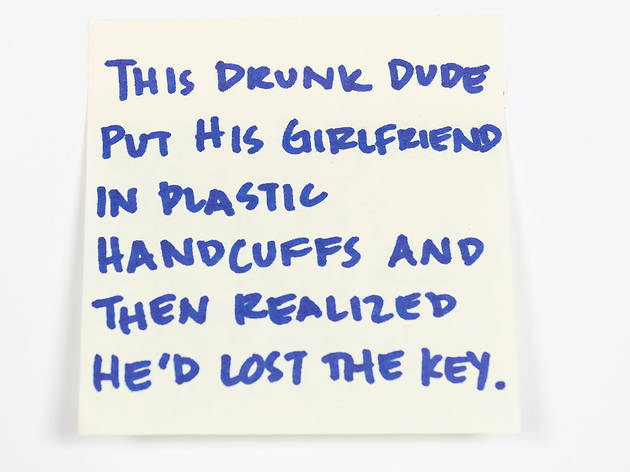 THIS DRUNK DUDE
PUT HIS GIRLFRIEND
IN PLASTIC
HANDCUFFS AND
THEN REALIZED
HE'D LOST THE KEY.